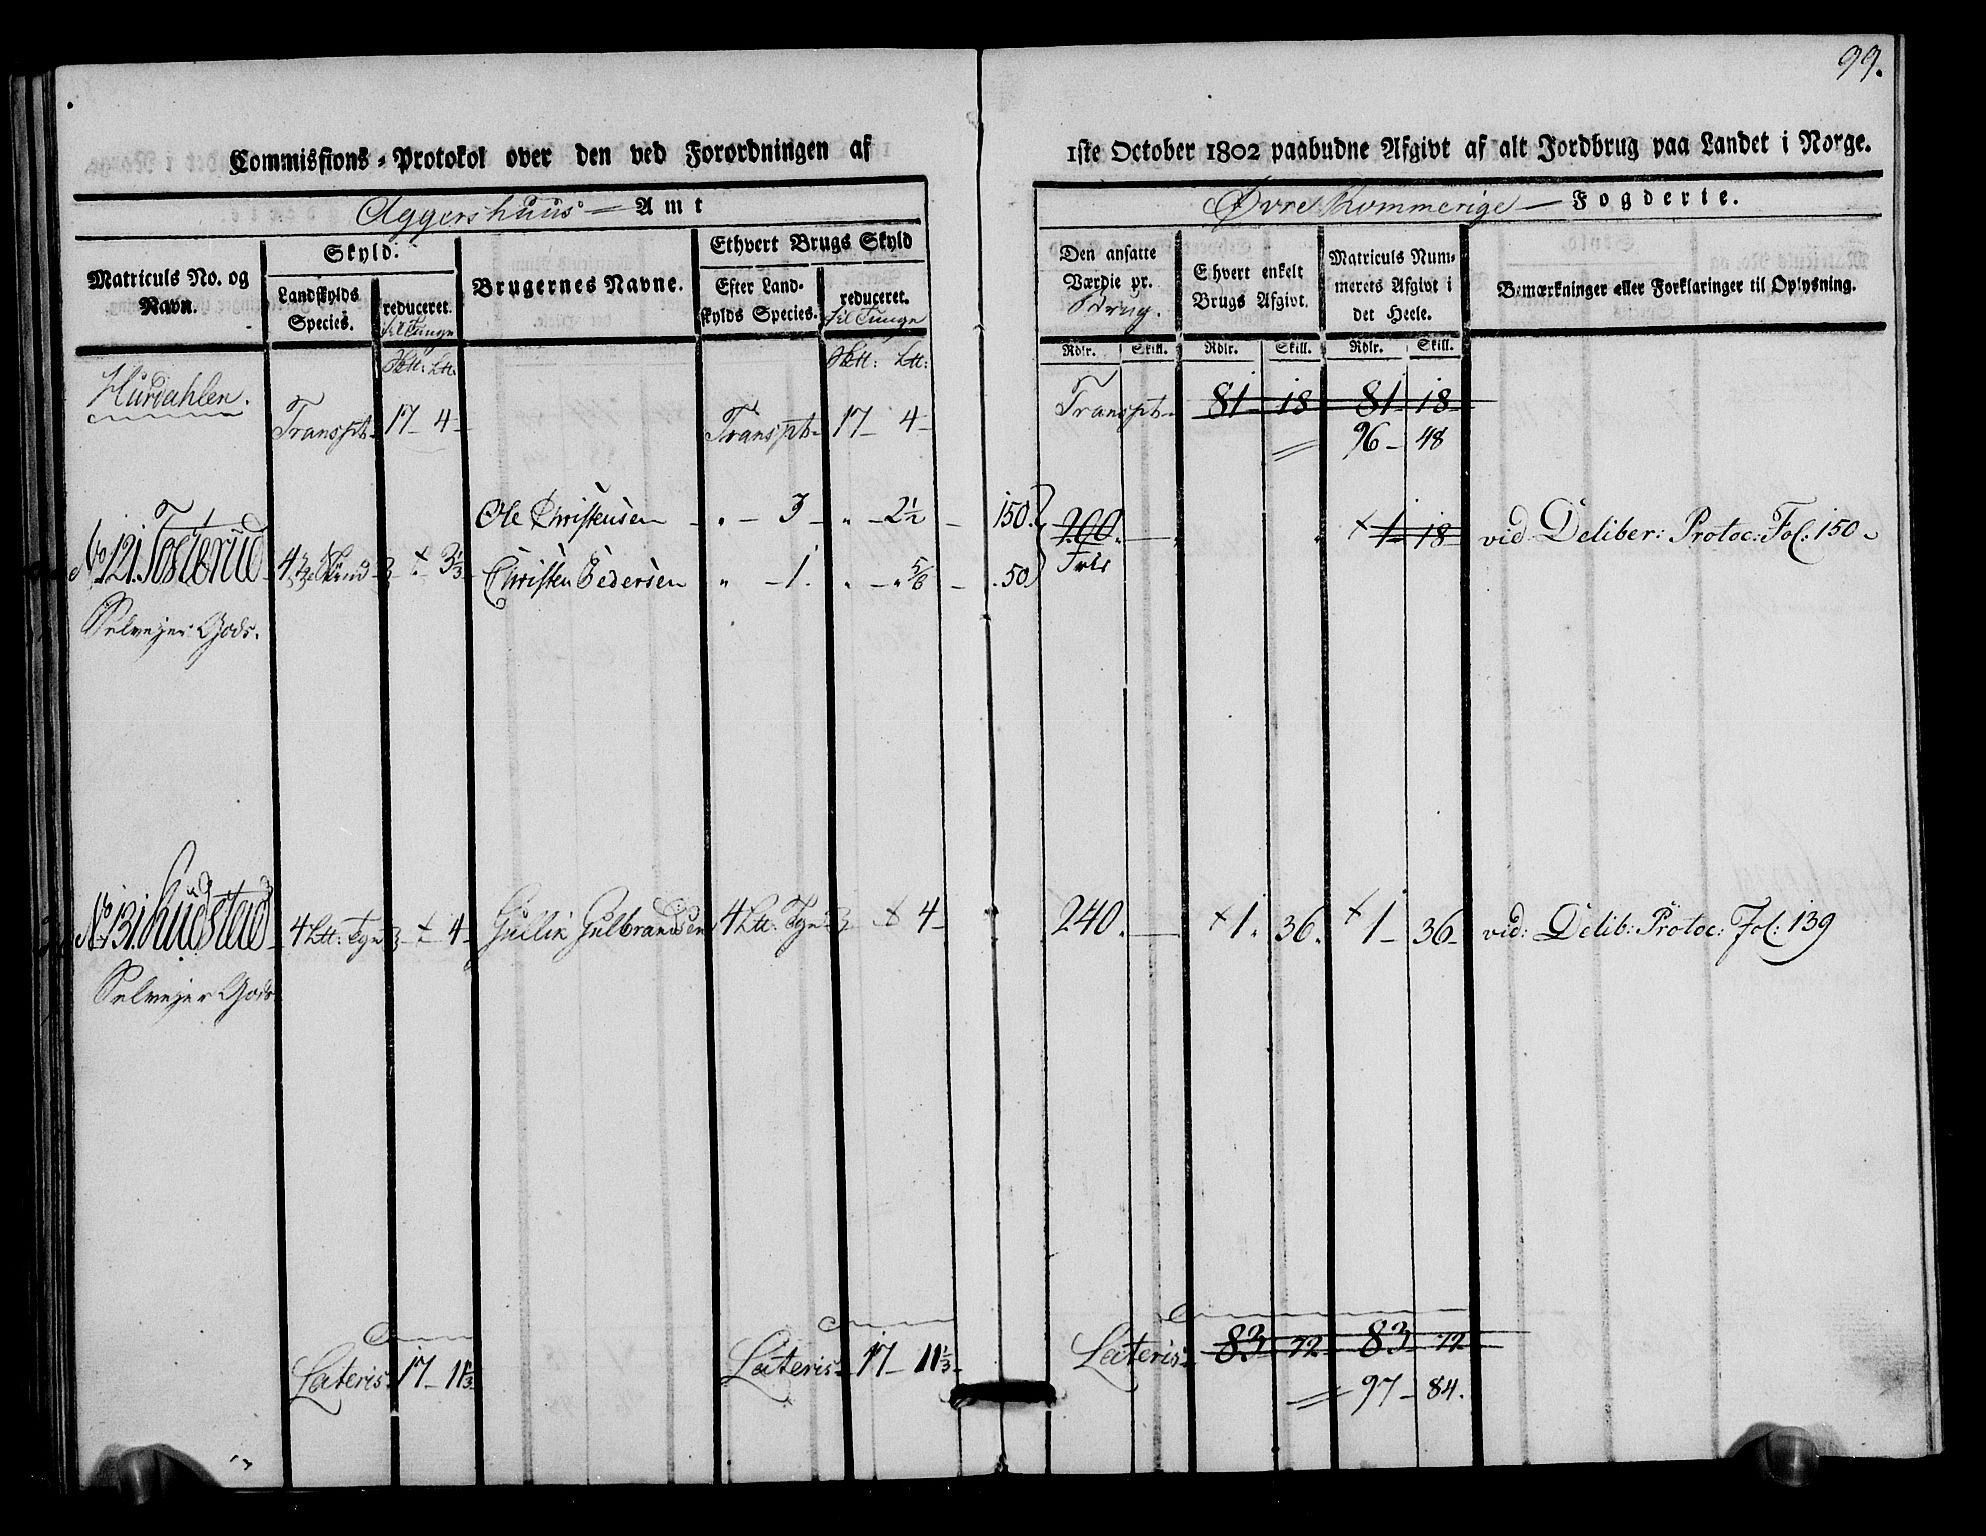 99.
Commissions-Protokol over den ved Forordningen af 1ste October 1802 paabudne Afgivt af alt Jordbrug paa Landet i Norge.
Aggershuus Amt
Øvre Rommerige Fogderie.
Matriculs No. og Navn.
Skyld.
Landskylds Species.
reduceret til Tunge
Brugernes Navne.
Ethvert Brugs Skyld
Efter Landskylds Species.
reduceret. til Tunge
Den ansatte Værdie pr. Brug.
Ehvert enkelt Brugs Afgivt.
Matriculs Nummerets Afgivt i det Heele.
Bemærkninger eller Forklaringer til Oplysning.
Ltt:
Ltt:
Rdlr. Skill. Rdlr. Skill. Rdlr. Skill.
Hurdahlen.
Transpt 17 - 4 - Transpt 17 - 4 - Transpt 81 - 18 81 - 18
96 - 48
Ole Christensen - " - 3 - " - 2½ - 150.
No 121. Tosterud 4 3⅓ 200. 1 - 18 vid Deliber: Protoc: Fol: 150
Frie
Christen Pedersen " - 1. " - " 5/6 - 50
Selvejer Gods.
No 131. Rudstad 4 Ltt: Tge 4 - Gullik Gulbrandsen 4 Ltt: Tge 4 - 240. 1. 36. 1 - 36 - vid: Delib: Protoc: Fol: 139
Selvejer Gods
Lateris 17 - 11⅓ Lateris 17 - 11⅓ - Lateris 83 72 83 72
97 - 84.